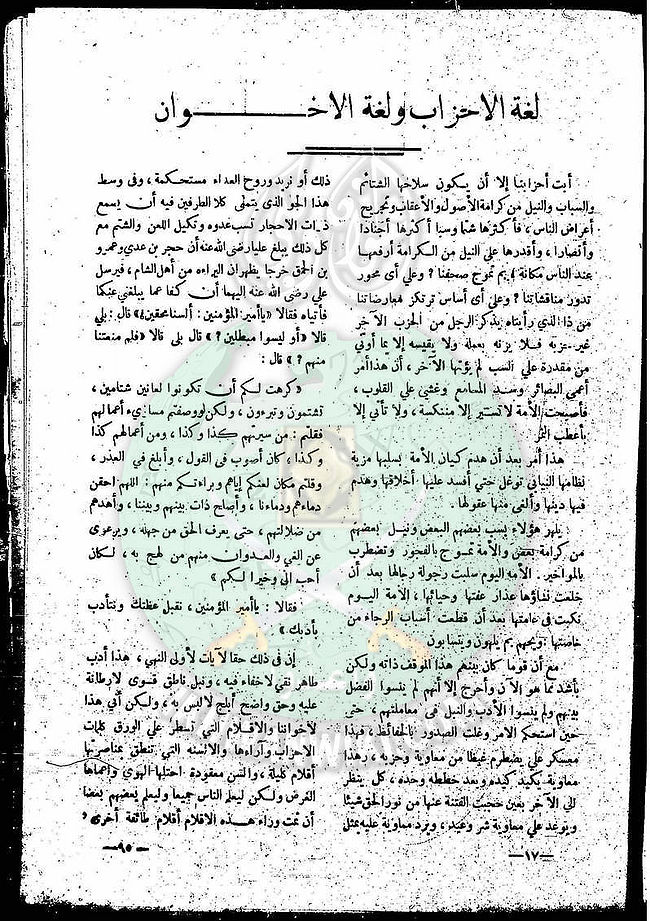 لغة الاحزاب ولغة الاخـــــوان
أبت أحزابنا إلا أن يكون سلاحها الشتائم
والسباب والنيل من كرامة الأصول والأعقاب وتجريح
أعراض الناس، فأكثرها شتما وسبا أكثرها أجنادا
وأنصارا، وأقدرها علي النيل من الكرامة أرفعها
عند الناس مكانة، بم تموج صحفنا؟ وعلي أى محور
تدور مناقشاتنا؟ وعلي أى أساس ترتكز معارضاتنا
من ذا الذي رأيناه يذكر الرجل من الحزب الآخر
غير حزبه فلا يزنه بعمله ولا يقيسه إلا بما أوتي
من مقدرة علي السب لم يؤتها الآخر، أن هذا أمر
أعمي البصائر وسد المسامع وغشي علي القلوب،
فأصبحت الأمة لا تسير إلا منتكسة، ولا تأتي إلا
بأعطب الثمر
هذا أمر بعد أن هدم كيان الأمة بسلبها مزية
نظامها النيابي توغل حتي أفسد عليها أخلاقها وهدم
فيها دينها وألغي منها عقولها.
يلهو هؤلاء بسب بعضهم البعض ونيل بعضهم
من كرامة بعض والأمة تموج بالفجور وتضطرب
بالمواخير. الأمة اليوم سلبت رجولة رجالها بعد أن
خلعت نساؤها عذار عفتها وحيائها، الأمة اليوم
نكبت في عامتها بعد أن قطعت أسباب الرجاء من
خاصتها ويحهم بم يلهون ويتسابون
مع أن قوما كان بينهم هذا الموقف ذاته ولكن
بأشد مما هو الآن وأحرج إلا أنهم لم ينسوا الفضل
بينهم ولم ينسوا الأدب والنبل في معاملتهم، حتى
حين استحكم الامر وغلت الصدور بالحفائظ، فهذا
معسكر علي يضطرم غيظا من معاوية وحزبه، وهذا
معاوية يكيد كيده ويعد خططه وحده، كل ينظر
الي الآخر بعين حجبت الفتنة عنها من نور الحق شيئا
ويوعد علي معاوية شر وعيد، ويرد معاوية عليه بمثل
—١٧—
ذلك أو نريد وروح العداء مستحكمة، وفى وسط
هذا الجو الذى يتمنى كلا الطرفين فيه أن يسمع
ذرات الاحجار تسب عدوه وتكيل اللعن والشتم مع
كل ذلك يبلغ عليا رضى الله عنه أن حجر بن عدى وعمرو
بن الحمق خرجا يظهران البراءه من أهل الشام، فيرسل
علي رضى الله عنه اليهما أن كفا عما يبلغني عنكما
فأتياه فقالا «ياأمير المؤمنين: ألسنا محقين؟» قال: بلي
قالا «أو ليسوا مبطلين؟» قال بلى قالا «فلم منعتنا
منهم؟» قال:
«كرهت لكم أن تكونوا لعانين شتامين،
تشتمون وتبرءون، ولكن لو وصفتم مساوىء أعمالهم
فقلتم: من سيرتهم كذا وكذا، ومن أعمالهم كذا
وكذا، كان أصوب فى القول، وأبلغ في العذر،
وقلتم مكان لعنكم إياهم وبراءتكم منهم: اللهم احقن
دماءهم ودماءنا، وأصلح ذات بينهم وبيننا، وأهدهم
من ضلالتهم، حتى يعرف الحق من جهله، ويرعوى
عن الغي والعدوان منهم من لهج به، لكان
أحب الى وخيرا لكم»
فقالا: ياأمير المؤمنين، نقبل عظتك ونتأدب
بأدبك»
إن فى ذلك حقا لآيات لأولى النهي، هذا أدب
طاهر نقي لا خفاء فيه، ونبل ناطق قوى لا رطانة
عليه وحق واضح أبلج لا لبس به، ولكن أني هذا
لأخواننا والاقلام التي تسطر علي الورق كلمات
الاحزاب وآراءها والالسنه التي تنطق بمناصرتها
أقلام كليلة، والسن معقودة احتلها الهوي وأعماها
الغرض ولكن ليعلم الناس جميعا وليعلم بعضهم بعضا
أن ثمت وراء هذه الاقلام أقلام طائفة أخرى،
—٩٥—